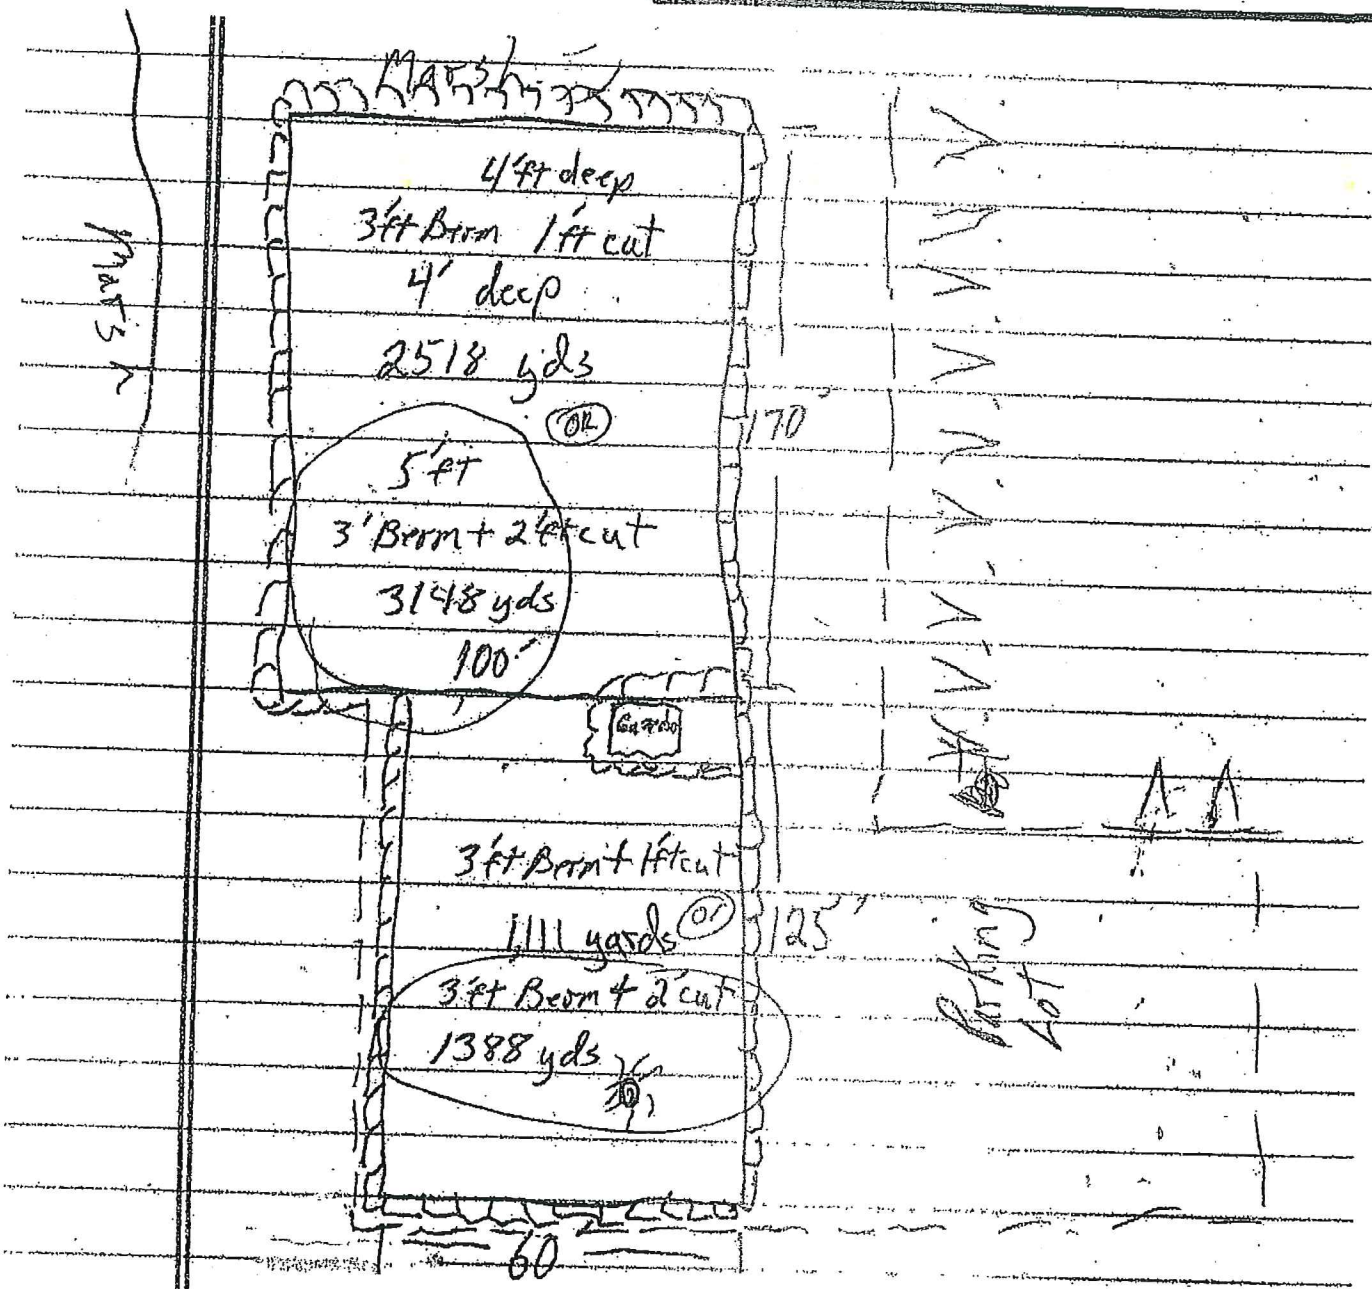 Marsh
Marsh
4'ft deep
3'ft Berm 1'ft cut
4' deep
2518 yds
OR
170'
5'ft
3' Berm + 2'ft cut
3148 yds
100'
Gazebo
3'ft Berm + 1'ft cut
1,111 yards or
125'
3'ft Berm + 2' cut
1388 yds
Parking
Lot
60